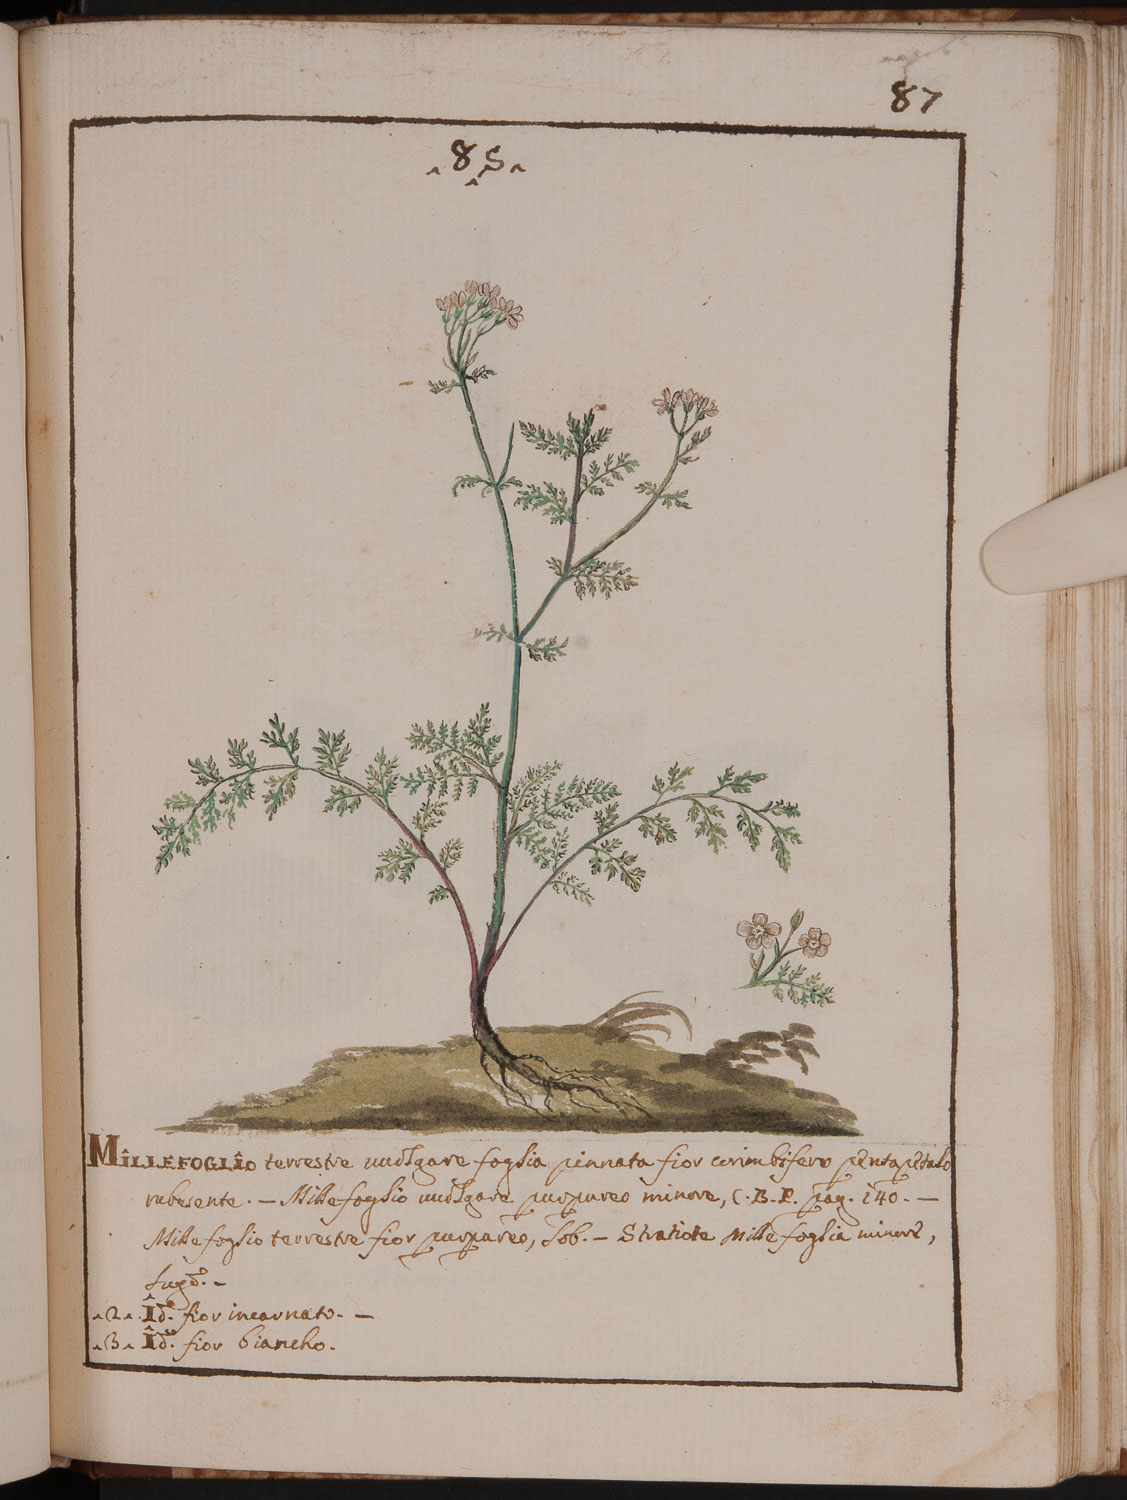 87
85
Millefoglio terrestre uuolgare foglia pinnata fior corimbifero pentapetalo
rubesente. — Millefoglio uuolgare purpureo minore, C. B. P. pag. 140. —
Millefoglio terrestre fior purpureo, Lob. — Stratiote Millefoglia minore,
Lugd. —
2. Id. fior incarnato. —
3. Id. fior biancho.